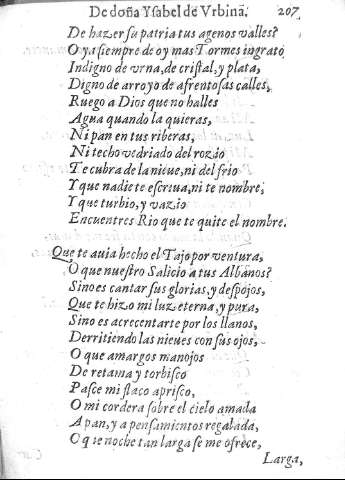 De doña Ysabel de Vrbinã. 207
De hazer su patria tus agenos valles?
O ya siempre de oy mas Tormes ingrato
Indigno de vrna, de cristal, y plata,
Digno de arroyo de afrentosas calles,
Ruego a Dios que no halles
Agua quando la quieras,
Ni pan en tus riberas,
Ni techo vedriado del rozio
Te cubra de la nieue, ni del frio
Y que nadie te escriua, ni te nombre,
Y que turbio, y vazio
Encuentres Rio que te quite el nombre.
Que te auia hecho el Tajo por ventura,
O que nuestro Salicio a tus Albanos?
Sino es cantar sus glorias, y despojos,
Que te hizo mi luz eterna, y pura,
Sino es acrecentarte por los llanos,
Derritiendo las nieues con sus ojos,
O que amargos manojos
De retama y torbisco
Pasce mi flaco aprisco,
O mi cordera sobre el cielo amada
A pan, y a pensamientos regalada,
O que noche tan larga se me ofrece,
Larga,